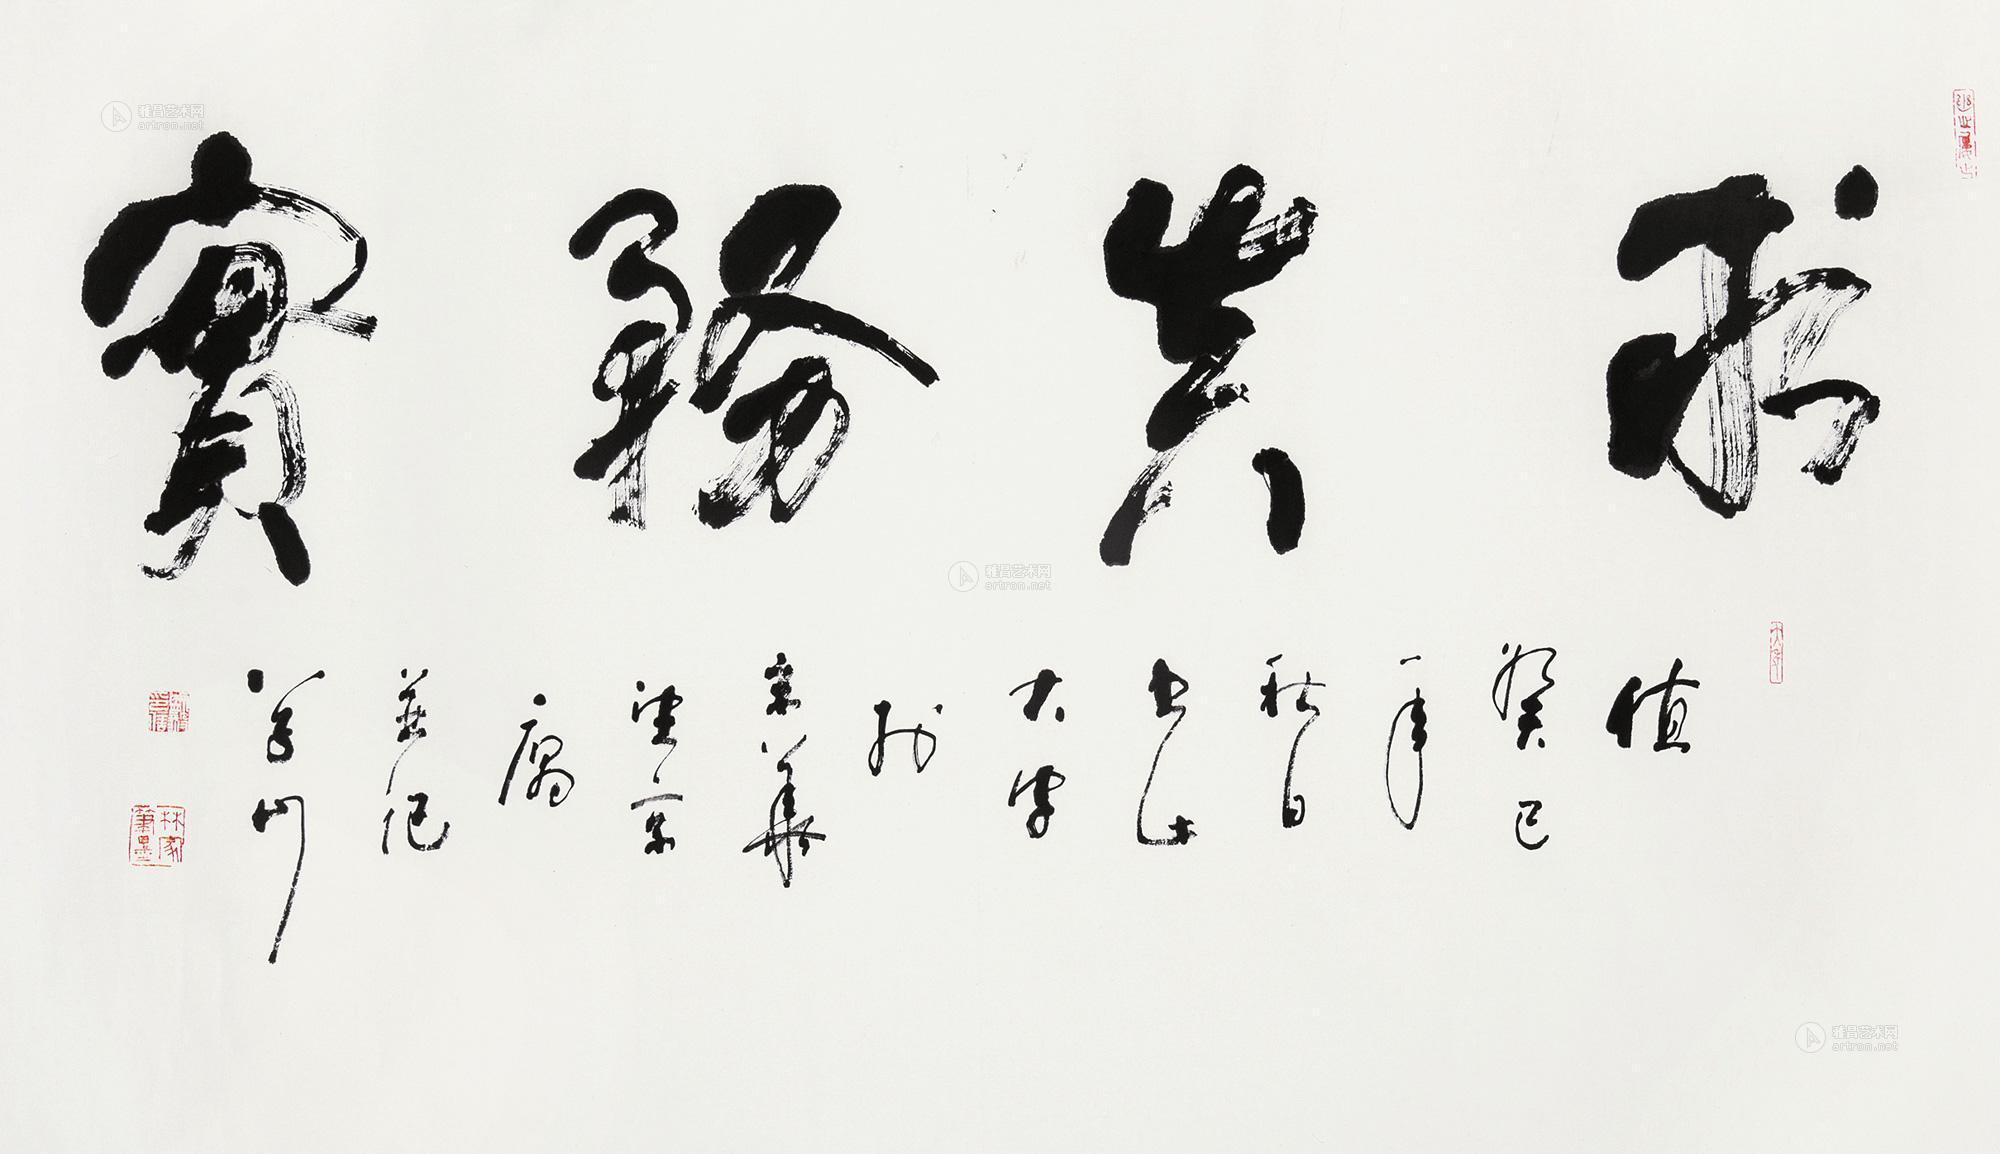 求真務實
值
癸巳
年
秋日
書此
大字
於
京華
望京
寓
並記
林家
筆墨
雅昌艺术网
artron.net
雅昌艺术网
artron.net
雅昌艺术网
artron.net